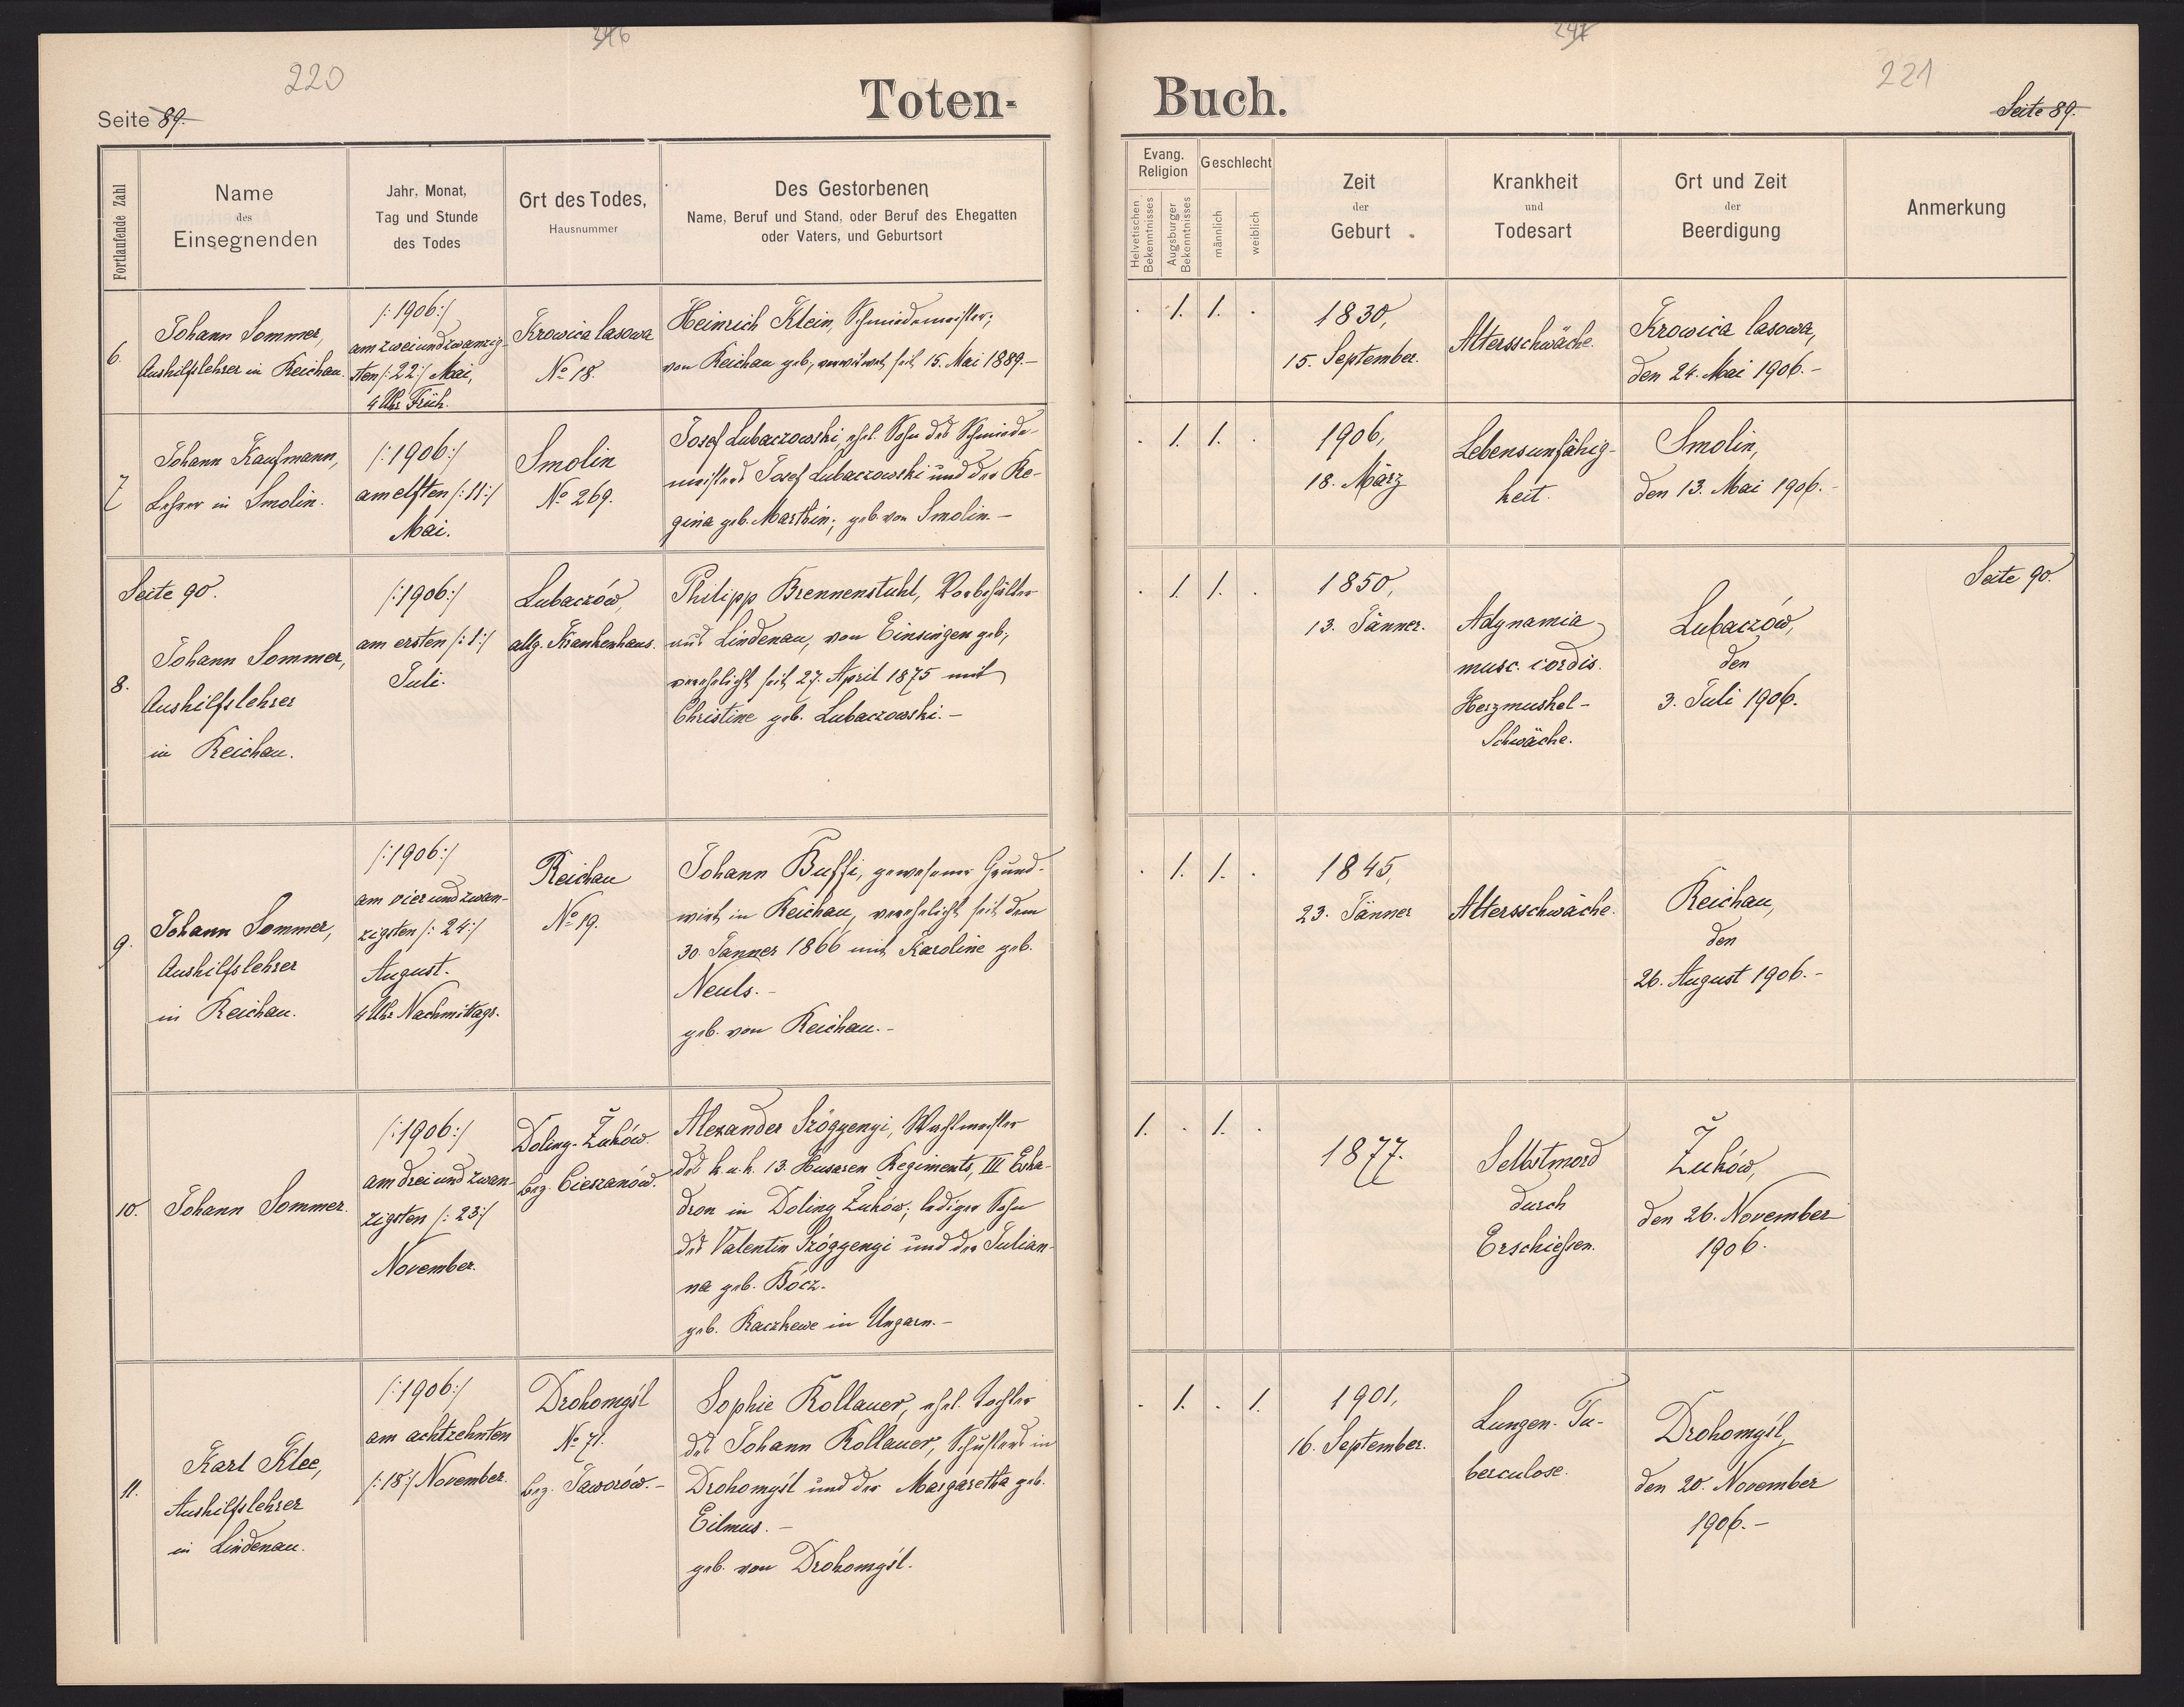 246
220
Seite 89.
Toten-
Fortlaufende Zahl
Name
des
Einsegnenden
Jahr, Monat,
Tag und Stunde
des Todes
Ort des Todes,
Hausnummer
Des Gestorbenen
Name, Beruf und Stand, oder Beruf des Ehegatten
oder Vaters, und Geburtsort
6.
Johann Sommer,
Aushilfslehrer in Reichau.
/:1906:/
am zweiundzwanzig-
sten /:22:/ Mai,
4 Uhr Früh.
Krowica lasowa
No 18.
Heinrich Klein, Schmiedemeister;
von Reichau geb., verwitwet seit 15. Mai 1889.-
7
Johann Kaufmann,
Lehrer in Smolin.
/:1906:/
am elften /:11:/
Mai.
Smolin
No 269.
Josef Lubaczowski, ehel. Sohn des Schmiede-
meisters Josef Lubaczowski und der Re-
gina geb. Marthin; geb. von Smolin.-
Seite 90.
8.
Johann Sommer,
Aushilfslehrer
in Reichau.
/:1906:/
am ersten /:1:/
Juli.
Lubaczów,
allg. Krankenhaus.
Philipp Brennenstuhl, Vorbehälter
aus Lindenau, von Einsingen geb.,
verehelicht seit 27. April 1875 mit
Christine geb. Lubaczowski.-
9.
Johann Sommer,
Aushilfslehrer
in Reichau.
/:1906:/
am vierundzwan-
zigsten /:24:/
August.
4 Uhr Nachmittags.
Reichau
No 19.
Johann Buffi, gewesener Grund-
wirt in Reichau, verehelicht seit dem
30. Jänner 1866 mit Karoline geb.
Neuls.-
geb. von Reichau.-
10.
Johann Sommer.
/:1906:/
am dreiundzwan-
zigsten /:23:/
November.
Doliny-Žuków.
Bez. Cieszanów.
Alexander Szögyenyi, Wachtmeister
des k.u.k. 13. Husaren Regiments, III Eska-
dron in Doliny Žuków; lediger Sohn
des Valentin Szögyenyi und der Julian-
na geb. Bócz.
geb. Raczkewe in Ungarn.-
11.
Karl Klee,
Aushilfslehrer
in Lindenau.
/:1906:/
am achtzehnten
/:18:/ November.
Drohomyśl
No 71.
Bez. Jaworów.-
Sophie Kollauer, ehel. Tochter
des Johann Kollauer, Schusters in
Drohomyśl und der Margaretha geb.
Eilmes.-
geb. von Drohomyśl.
247
221
Buch.
Seite 89.
Evang.
Religion
Helvetischen
Bekenntnisses
Augsburger
Bekenntnisses
Geschlecht
männlich
weiblich
Zeit
der
Geburt
Krankheit
und
Todesart
Ort und Zeit
der
Beerdigung
Anmerkung
. 1. 1. .
1830,
15. September.
Altersschwäche.
Krowica lasowa,
den 24. Mai 1906.-
. 1. 1. .
1906,
18. März
Lebensunfähig-
keit.
Smolin,
den 13. Mai 1906.-
Seite 90.
. 1. 1. .
1850,
13. Jänner.
Adynamia
musc. cordis.
Herzmuskel-
Schwäche.
Lubaczów,
den
3. Juli 1906.
. 1. 1. .
1845,
23. Jänner
Altersschwäche.
Reichau,
den
26. August 1906.-
1. . 1. .
1877.
Selbstmord
durch
Erschießen.
Žuków,
den 26. November
1906.
. 1. . 1.
1901,
16. September.
Lungen-Tu-
berculose.
Drohomyśl,
den 20. November
1906.-